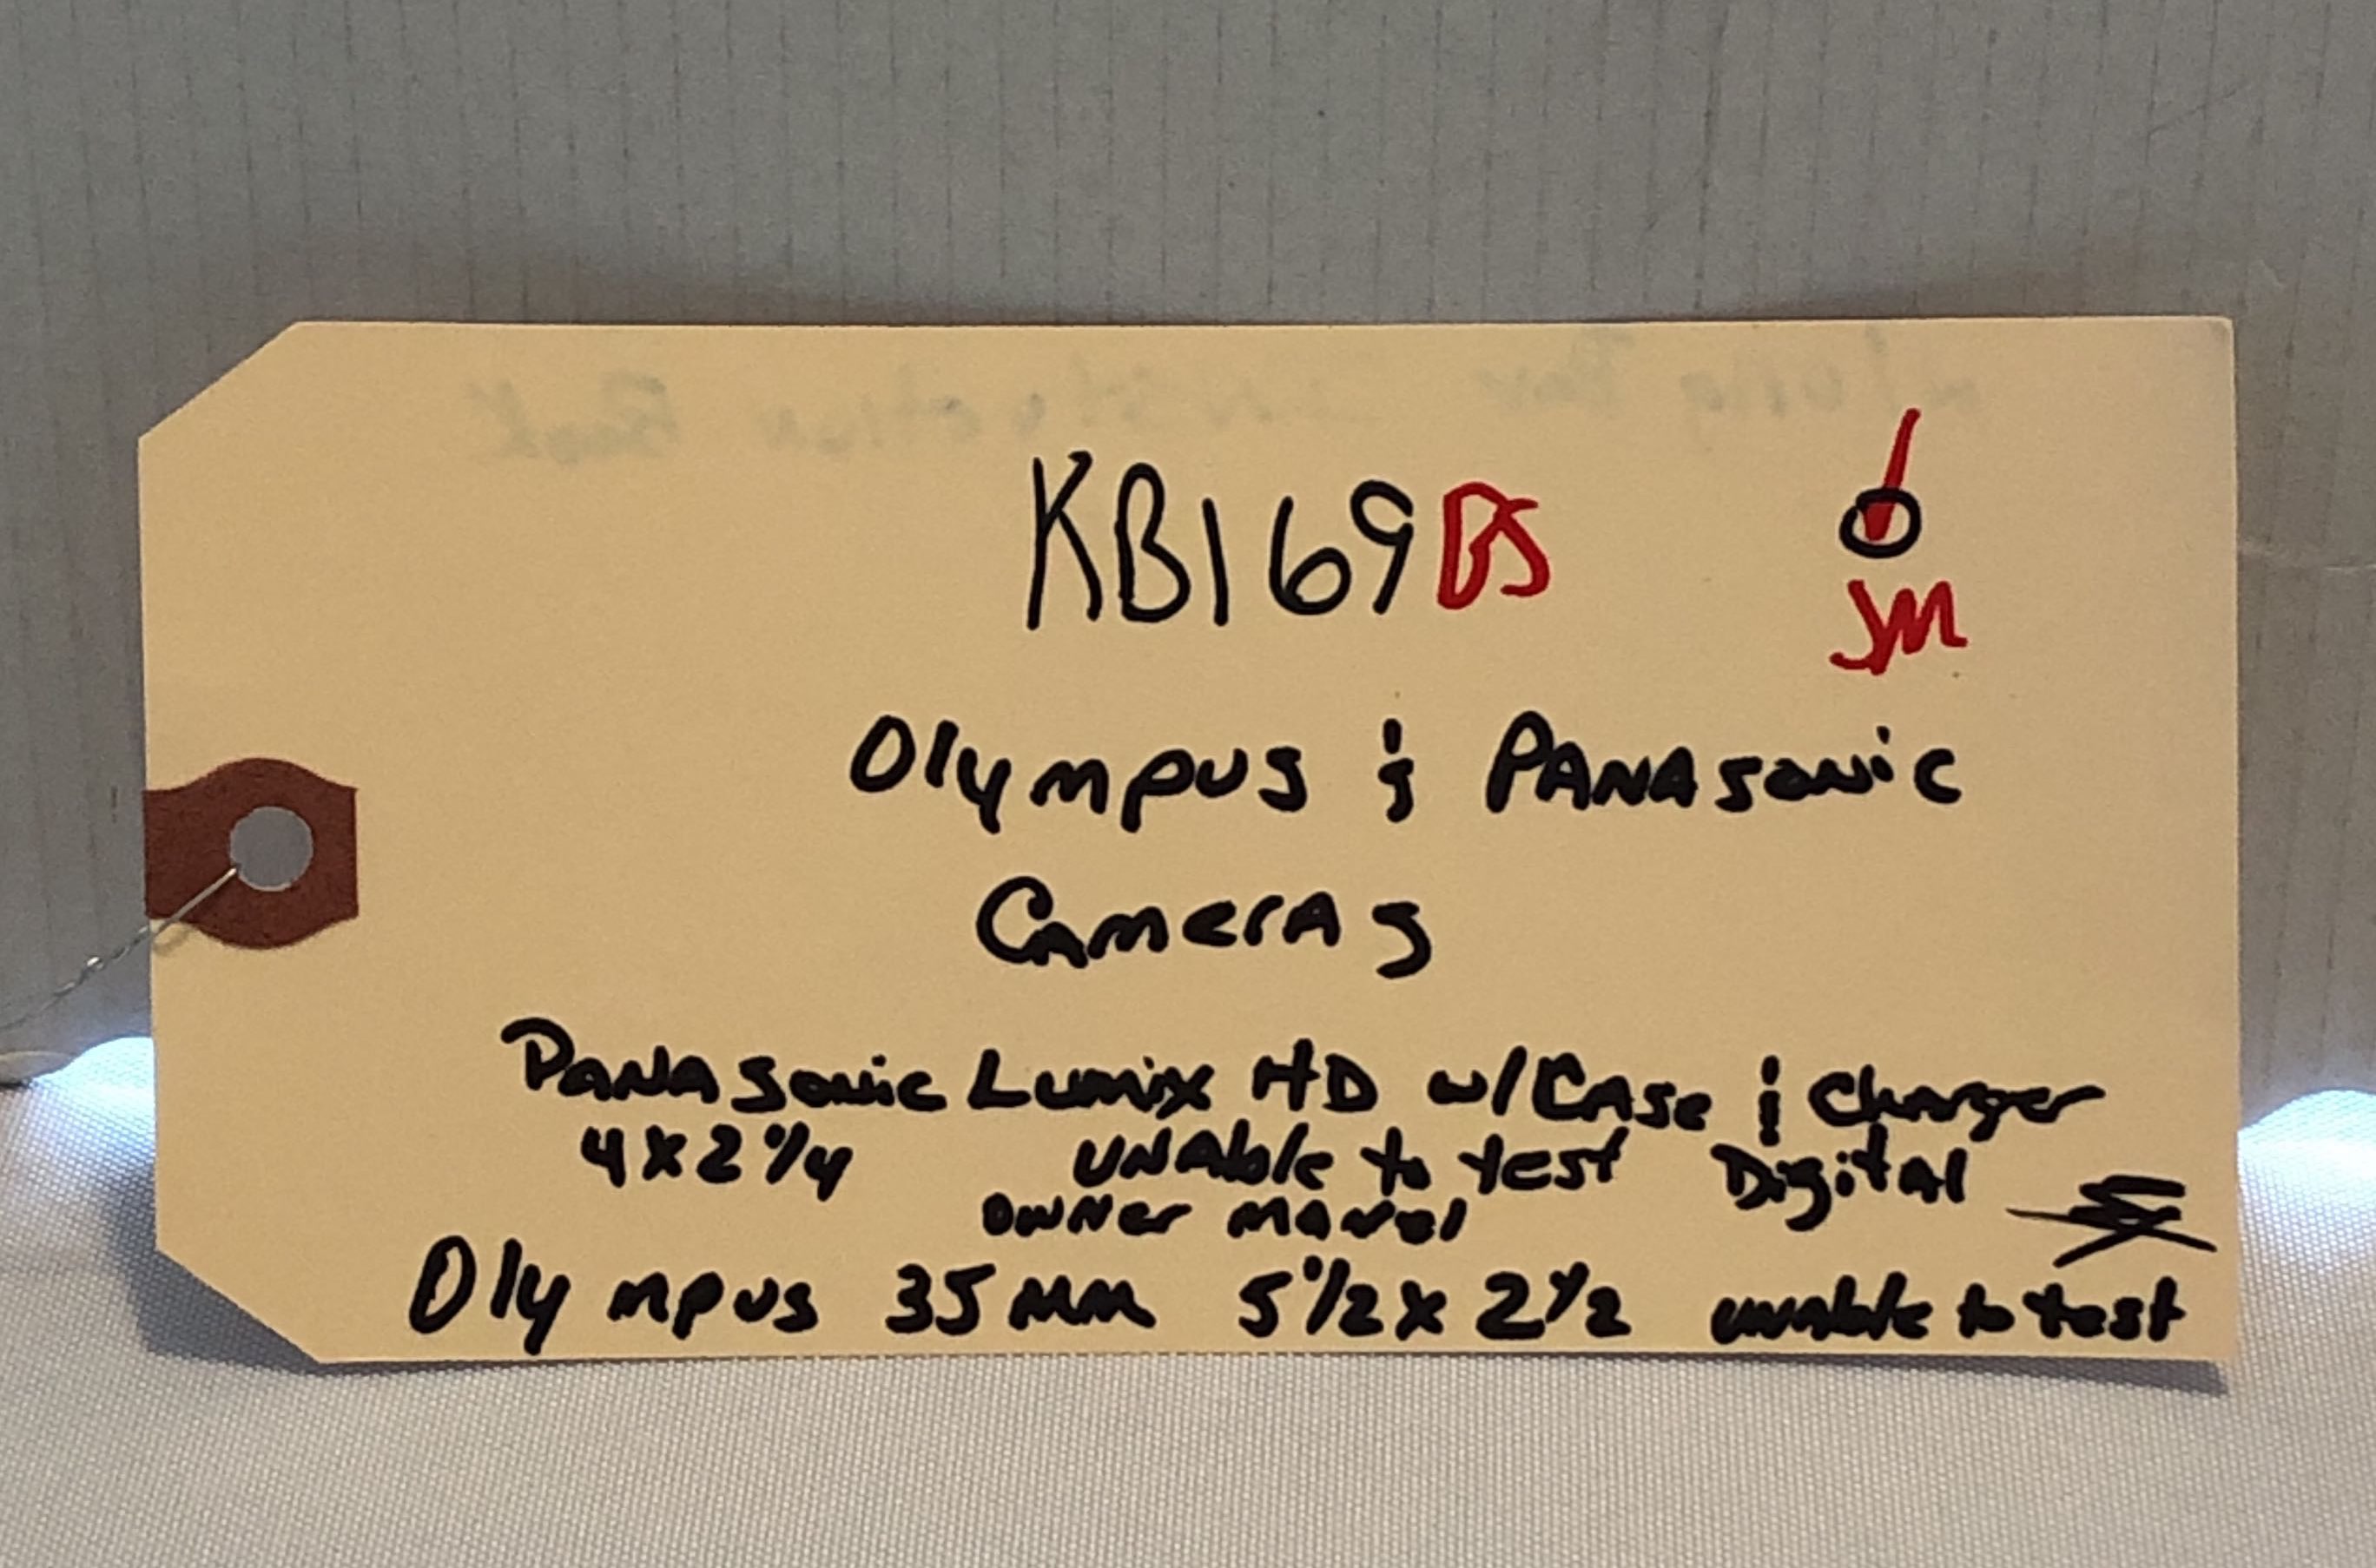 KB169 DS
JM
Olympus & PANASonic
CAmerAs
PANASonic Lumix HD w/CASe & Charger
4x2 1/4 UNAble to test Digital
OWNer MANUel
Olympus 35mm 5 1/2 x 2 1/2 unable to test